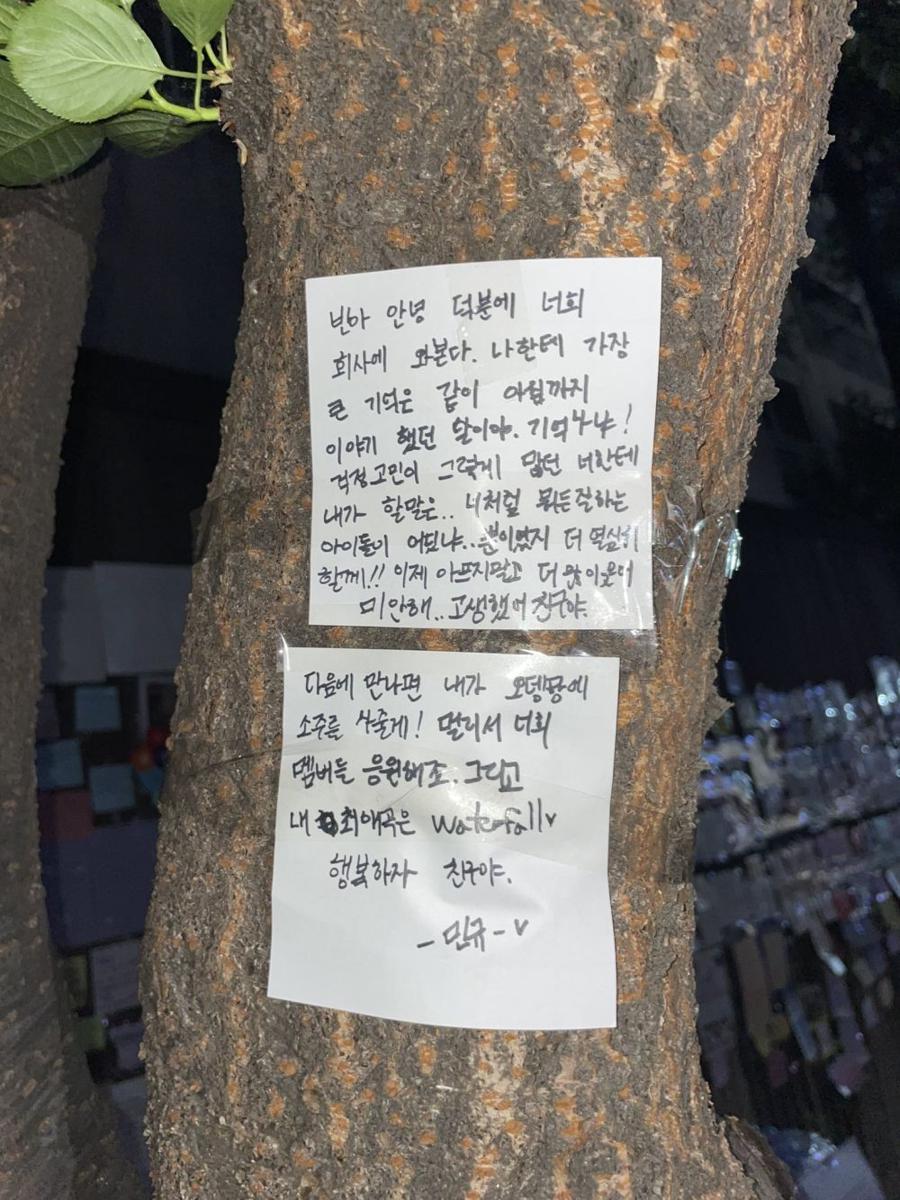 빈아 안녕 덕분에 너희
회사에 와본다. 나한테 가장
큰 기억은 같이 아침까지
이야기 했던 날이야. 기억나냐!
걱정고민이 그렇게 많던 너한테
내가 할말은.. 너처럼 뭐든잘하는
아이돌이 어딨냐..뿐이었지 더 열심히
할께!! 이제 아프지말고 더 많이웃어
미안해.. 고생했어 친구야.
다음에 만나면 내가 오뎅탕에
소주를 사줄게! 멀리서 너희
멤버들 응원해조. 그리고
내 최애곡은 waterfall
행복하자 친구야.
- 민규 -